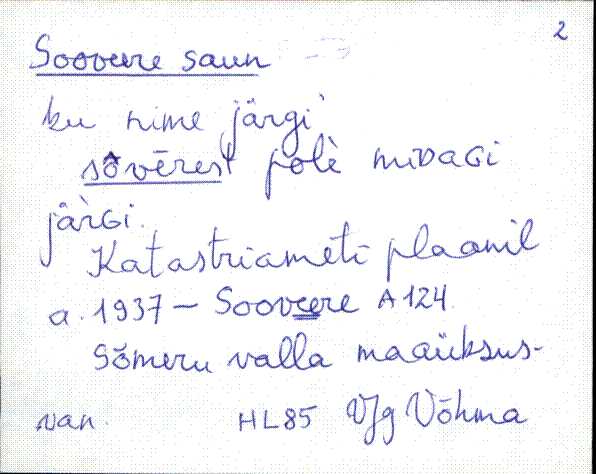 2
Sooveere saun
ku nime järgi
sȭvērest polè mīDaGi
järGi.
Katastriameti plaanil
a. 1937 — Sooveere A124.
Sõmeru valla maaüksus-
van. HL85 VJg Võhma